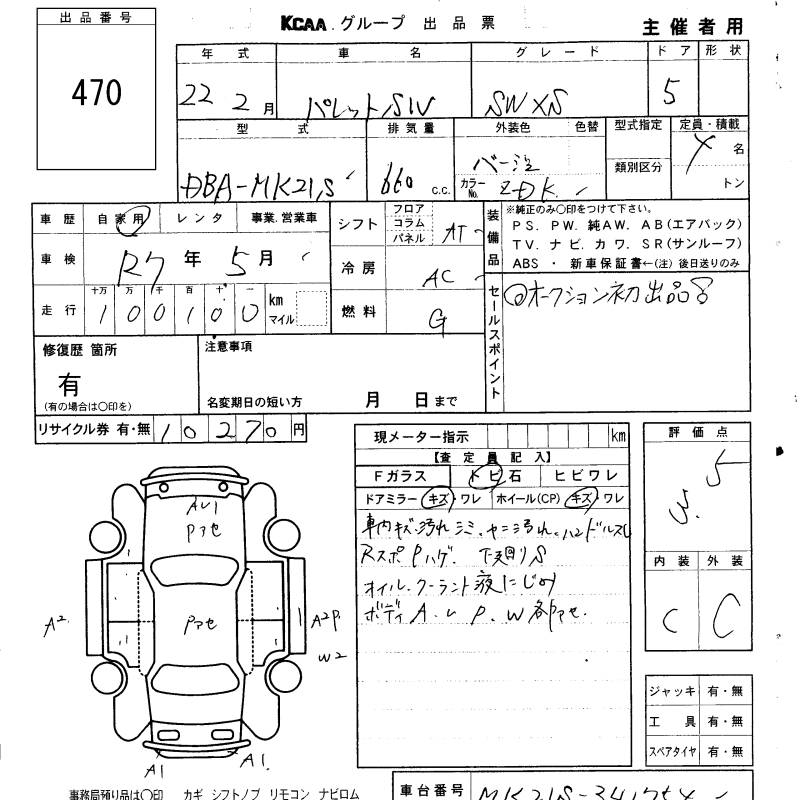 出品番号
470
KCAA.グループ 出品票
主催者用
年式 車名 グレード ドア 形状
22 2月 パレットSW SW XS 5
型式 排気量 外装色 色替 型式指定 定員・積載
DBA-MK21S 660 c.c. ベージュ 類別区分 4名
カラーNo. ZDK トン
車歴 自家用 レンタ 事業.営業車
車検 R7年 5月
走行 十万 万 千 百 十 一
100100 km マイル
シフト フロア コラム パネル AT
冷房 AC
燃料 G
装備品
※純正のみ○印をつけて下さい。
PS. PW. 純AW. AB(エアバック)
TV. ナビ. カワ. SR(サンルーフ)
ABS ・ 新車保証書←(注)後日送りのみ
セールスポイント
◎オークション初出品
修復歴 箇所
有
(有の場合は○印を)
注意事項
名変期日の短い方 月 日まで
リサイクル券 有・無 10270円
現メーター指示 km
【査定員記入】
Fガラス トビ石 ヒビワレ
ドアミラー キズ・ワレ ホイール(CP) キズ・ワレ
車内キズ.汚れシミ.ヤニ汚れ.ハンドルスレ
RスポPハゲ. 下廻りS
オイル.クーラント液にじみ
ボディA.U P.W各Pアセ.
評価点
3.5
内装 外装
C C
AU1
Pアセ
Pアセ
A2
A2P
W2
A1
A1.
ジャッキ 有・無
工具 有・無
スペアタイヤ 有・無
事務局預り品は○印 カギ シフトノブ リモコン ナビロム
車台番号 MK21S-